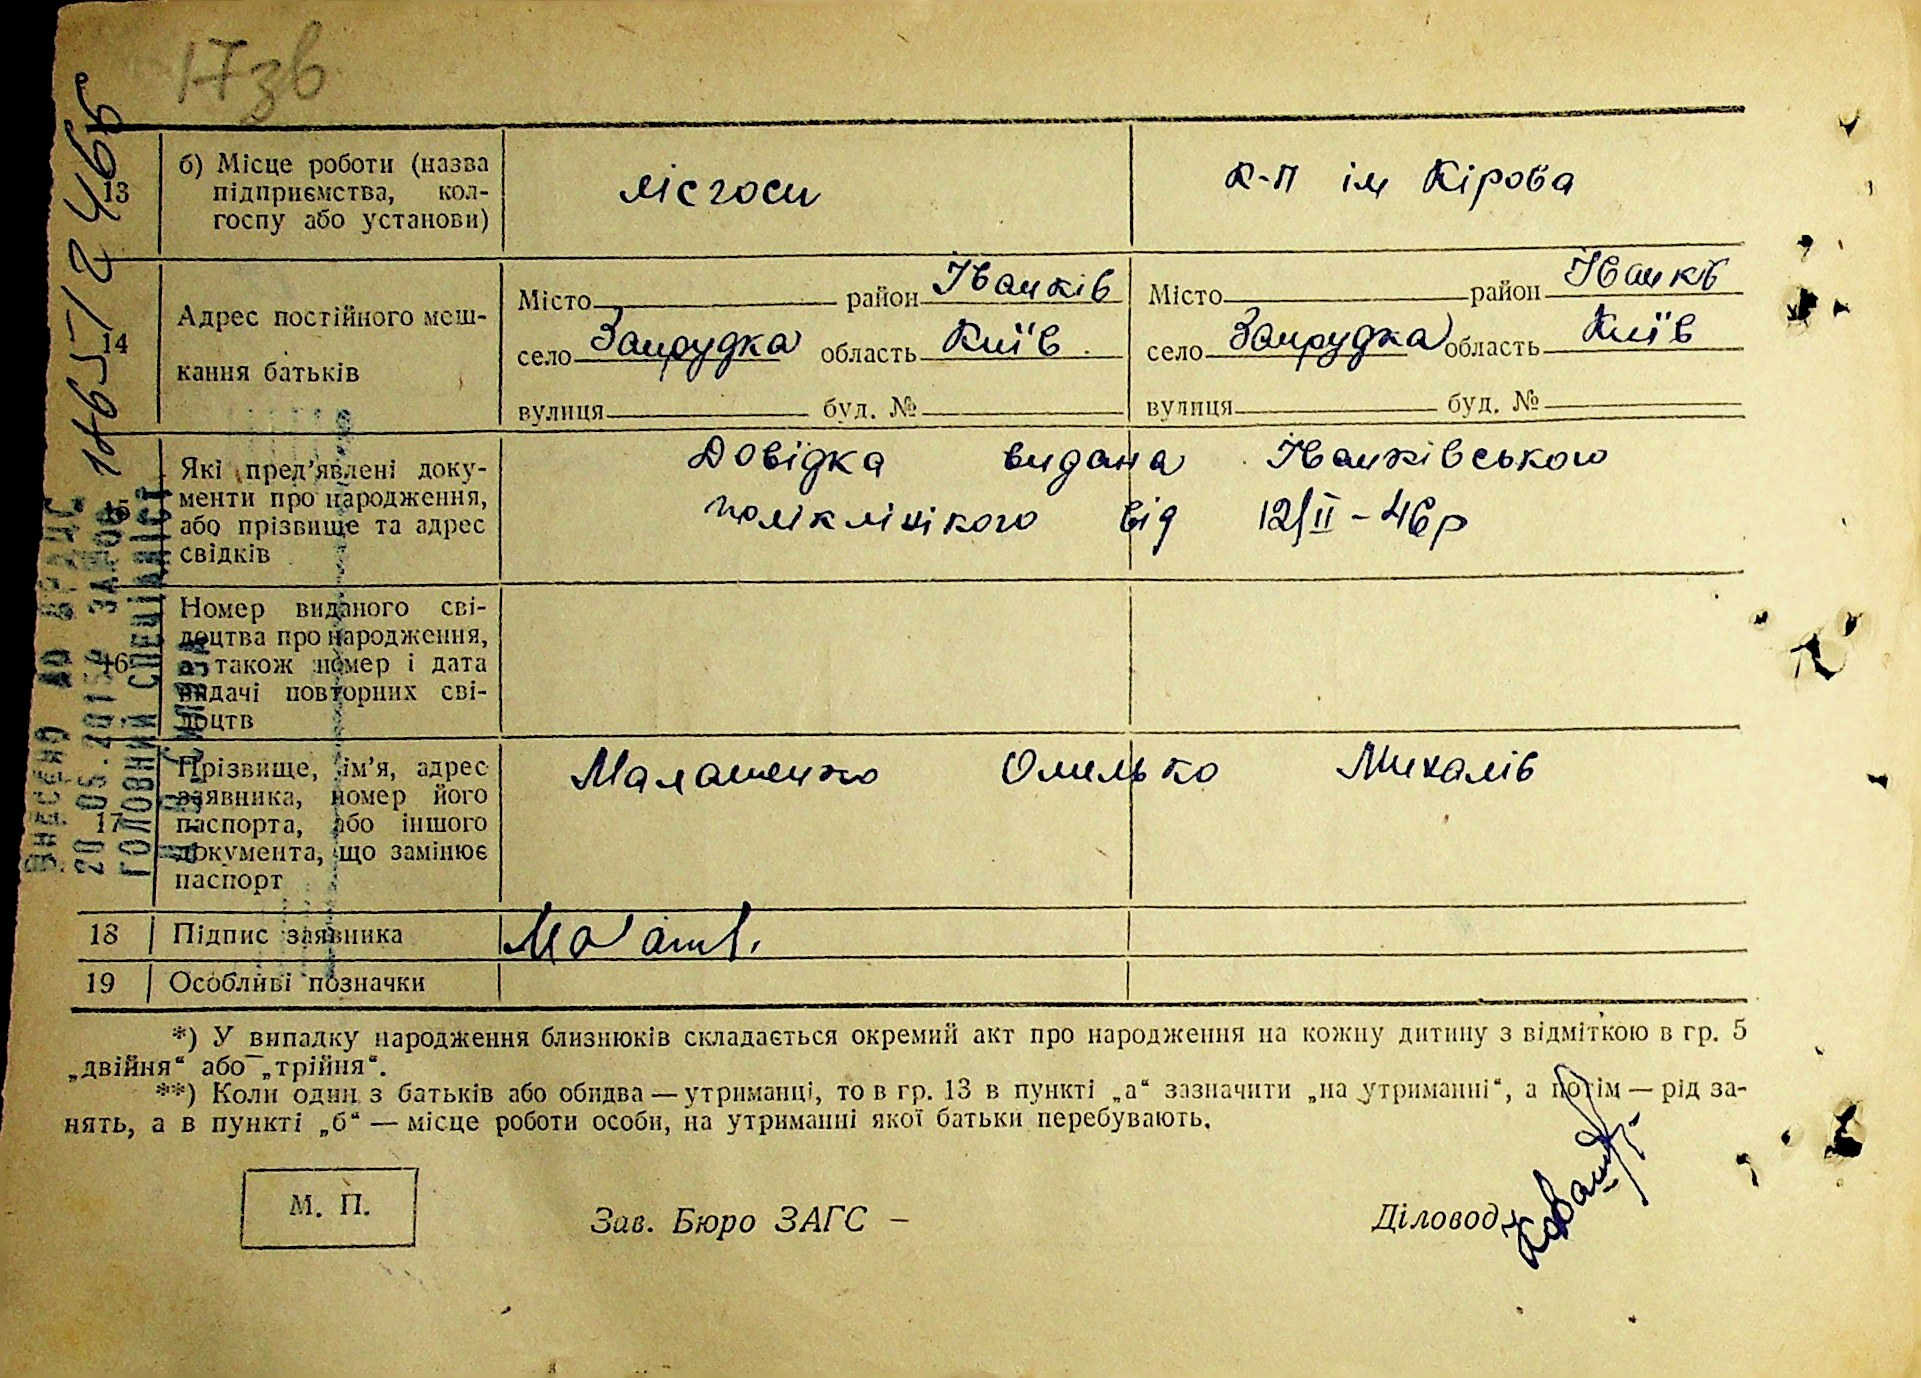 17зв
13
б) Місце роботи (назва
підприємства, кол-
госпу або установи)
лісгосп
к-п ім Кірова
14
Адрес постійного меш-
кання батьків
Місто район Іванків
село Запрудка область Київ
вулиця буд. №
Місто район Іванків
село Запрудка область Київ
вулиця буд. №
15
Які пред’явлені доку-
менти про народження,
або прізвище та адрес
свідків
Довідка видана Іванківською
поліклінікою від 12/II-46р
16
Номер виданого сві-
доцтва про народження,
а також номер і дата
видачі повторних сві-
доцтв
17
Прізвище, ім’я, адрес
заявника, номер його
паспорта, або іншого
документа, що замінює
паспорт
Малашенко Омелько Михалів
18 Підпис заявника
19 Особливі позначки
*) У випадку народження близнюків складається окремий акт про народження на кожну дитину з відміткою в гр. 5
„двійня“ або „трійня“.
**) Коли один з батьків або обидва — утриманці, то в гр. 13 в пункті „а“ зазначити „на утриманні“, а потім — рід за-
нять, а в пункті „б“ — місце роботи особи, на утриманні якої батьки перебувають.
М. П.
Зав. Бюро ЗАГС –
Діловод
ВНЕСЕНО ДО ДРАЦС
20.05.2015
ГОЛОВНИЙ СПЕЦІАЛІСТ